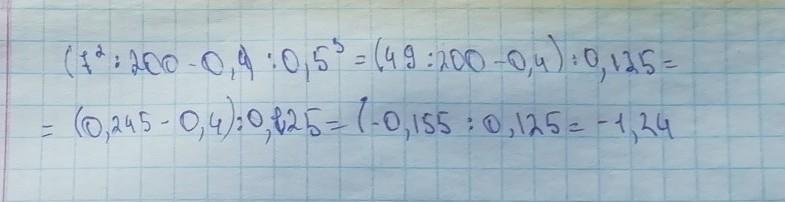 (7² : 200 - 0,4) : 0,5³ = (49 : 200 - 0,4) : 0,125 =
= (0,245 - 0,4) : 0,125 = (-0,155 : 0,125 = -1,24